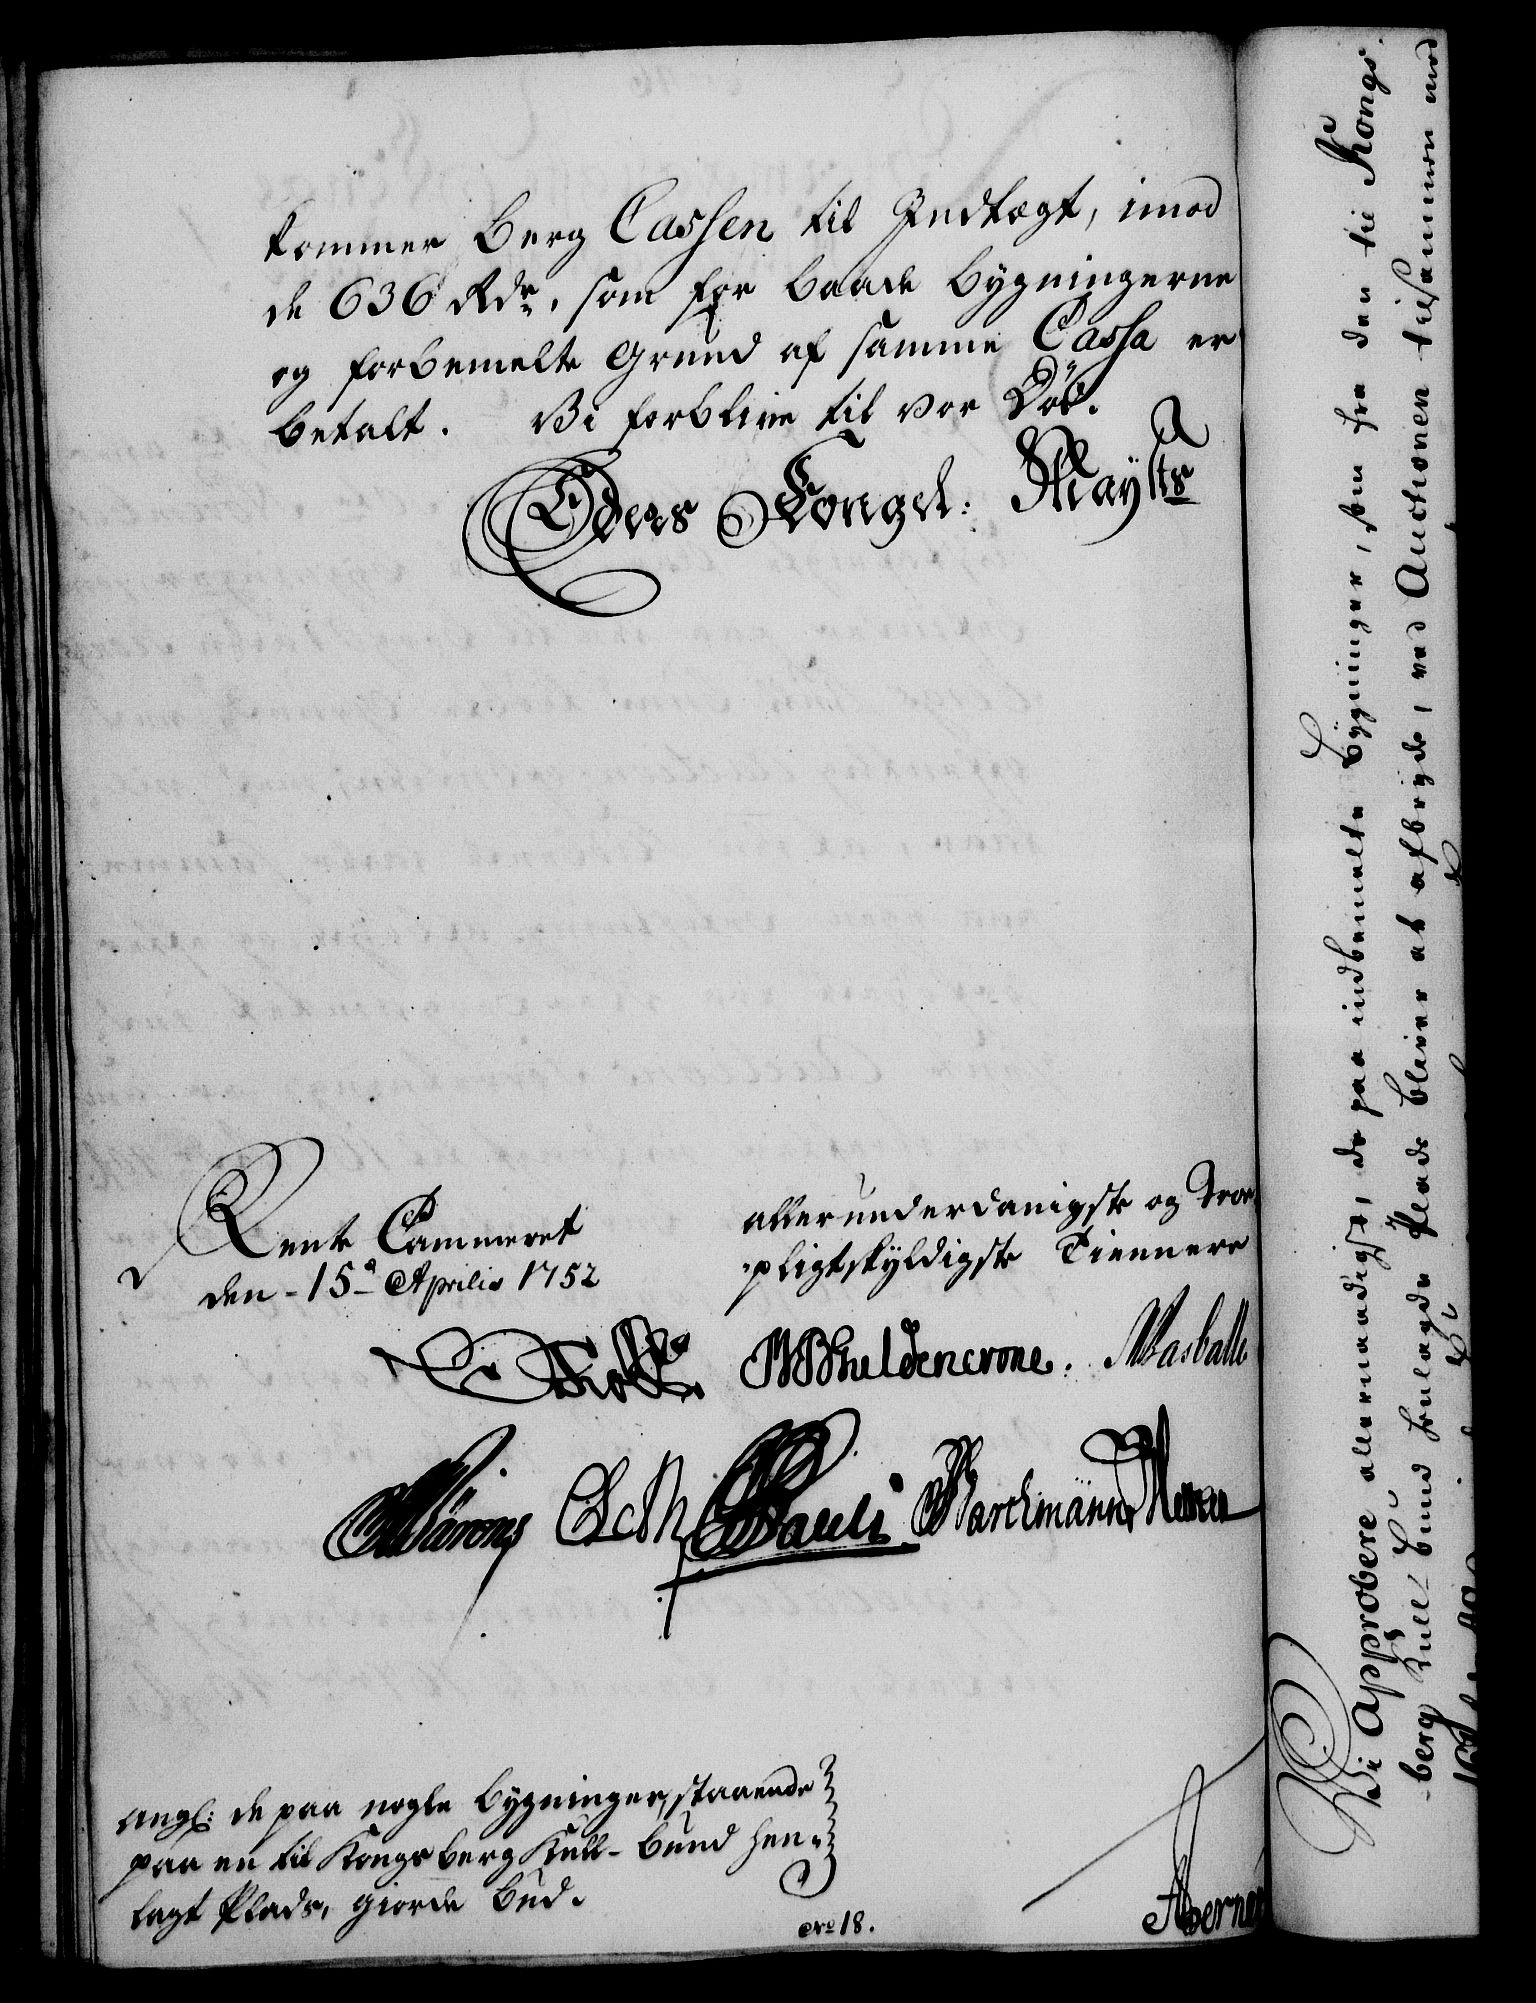 kommer Berg Cassen til Indtægt, imod
de 636 Rdr, som for baade Bygningerne
og forbemelte Grund af samme Cassa er
betalt. Vi forblive til vor Död.
Eders Kongel: Mayts
Rente Cammeret
den 15 Aprilis 1752
allerunderdanigste og Troe
pligtskyldigste Tienere
Holstein
Barchmann
Pauli
angl: de paa nogle Bygninger, staaende
paa en til Kongsberg Kull-Bund hen-
lagt Plads, giorde Bud.
No 18.
Vi Approbere allernaadigst, de paa indbemelte Bygninger, som fra den til Kongs-
berg Kull-Bund henlagde Plads bliver at afbryde, ved Auctionen tilsammen